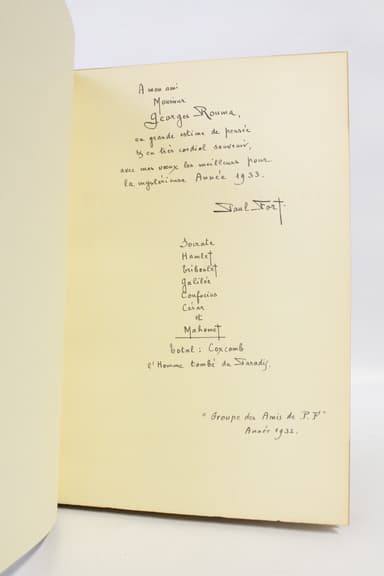 A mon ami
Monsieur
Georges Rouma,
en grande estime de pensée
& en très cordial souvenir,
avec mes vœux les meilleurs pour
la mystérieuse Année 1933.
Paul Fort.
Socrate
Hamlet
Triboulet
Galilée
Confucius
César
et
Mahomet
Total : Coxcomb
l'Homme tombé du Paradis.
"Groupe des Amis de P. F"
Année 1932.